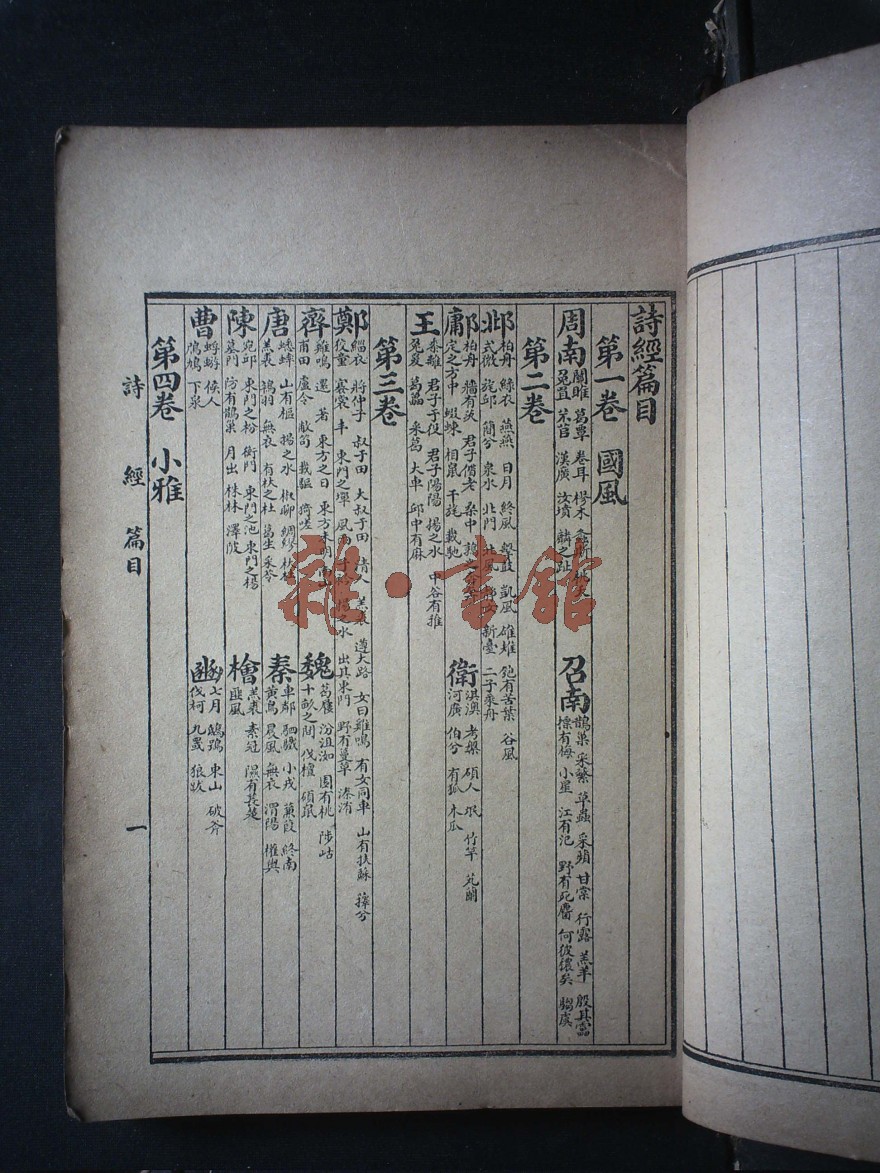 詩經篇目
第一卷 國風
周南 關雎 葛覃 卷耳 樛木 螽斯 桃夭 兔罝 芣苢 漢廣 汝墳 麟之趾
召南 鵲巢 采蘩 草蟲 采蘋 甘棠 行露 羔羊 殷其靁 摽有梅 小星 江有汜 野有死麕 何彼襛矣 騶虞
第二卷
邶 柏舟 綠衣 燕燕 日月 終風 擊鼓 凱風 雄雉 匏有苦葉 谷風 式微 旄邱 簡兮 泉水 北門 北風 靜女 新臺 二子乘舟
鄘 柏舟 牆有茨 君子偕老 桑中 鶉之奔奔 定之方中 蝃蝀 相鼠 干旄 載馳
衛 淇澳 考槃 碩人 氓 竹竿 芄蘭 河廣 伯兮 有狐 木瓜
王 黍離 君子于役 君子陽陽 揚之水 中谷有蓷 兔爰 葛藟 采葛 大車 邱中有麻
第三卷
鄭 緇衣 將仲子 叔于田 大叔于田 清人 羔裘 遵大路 女曰雞鳴 有女同車 山有扶蘇 蘀兮 狡童 褰裳 丰 東門之墠 風雨 子衿 揚之水 出其東門 野有蔓草 溱洧
齊 雞鳴 還 著 東方之日 東方未明 南山 甫田 盧令 敝笱 載驅 猗嗟
魏 葛屨 汾沮洳 園有桃 陟岵 十畝之間 伐檀 碩鼠
唐 蟋蟀 山有樞 揚之水 椒聊 綢繆 杕杜 羔裘 鴇羽 無衣 有杕之杜 葛生 采苓
秦 車鄰 駟驖 小戎 蒹葭 終南 黃鳥 晨風 無衣 渭陽 權輿
陳 宛邱 東門之枌 衡門 東門之池 東門之楊 墓門 防有鵲巢 月出 株林 澤陂
檜 羔裘 素冠 隰有萇楚 匪風
曹 蜉蝣 候人 鳲鳩 下泉
豳 七月 鴟鴞 東山 破斧 伐柯 九罭 狼跋
第四卷 小雅
詩經 篇目 一
雜·書館